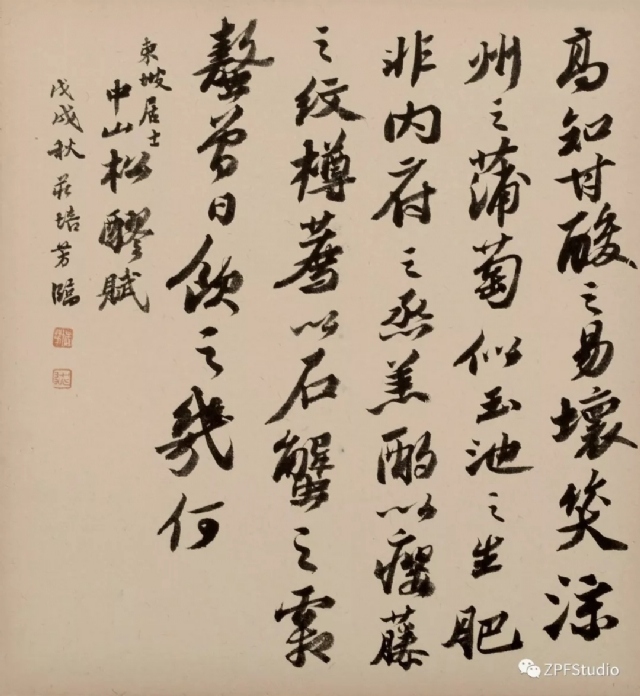 高知甘酸之易壞笑涼
州之蒲萄似玉池之生肥
非内府之烝羔酌以癭藤
之紋樽薦以石蟹之霜
螯曾日飲之幾何
東坡居士
中山松醪賦
戊戌秋莊培芳臨
ZPFStudio